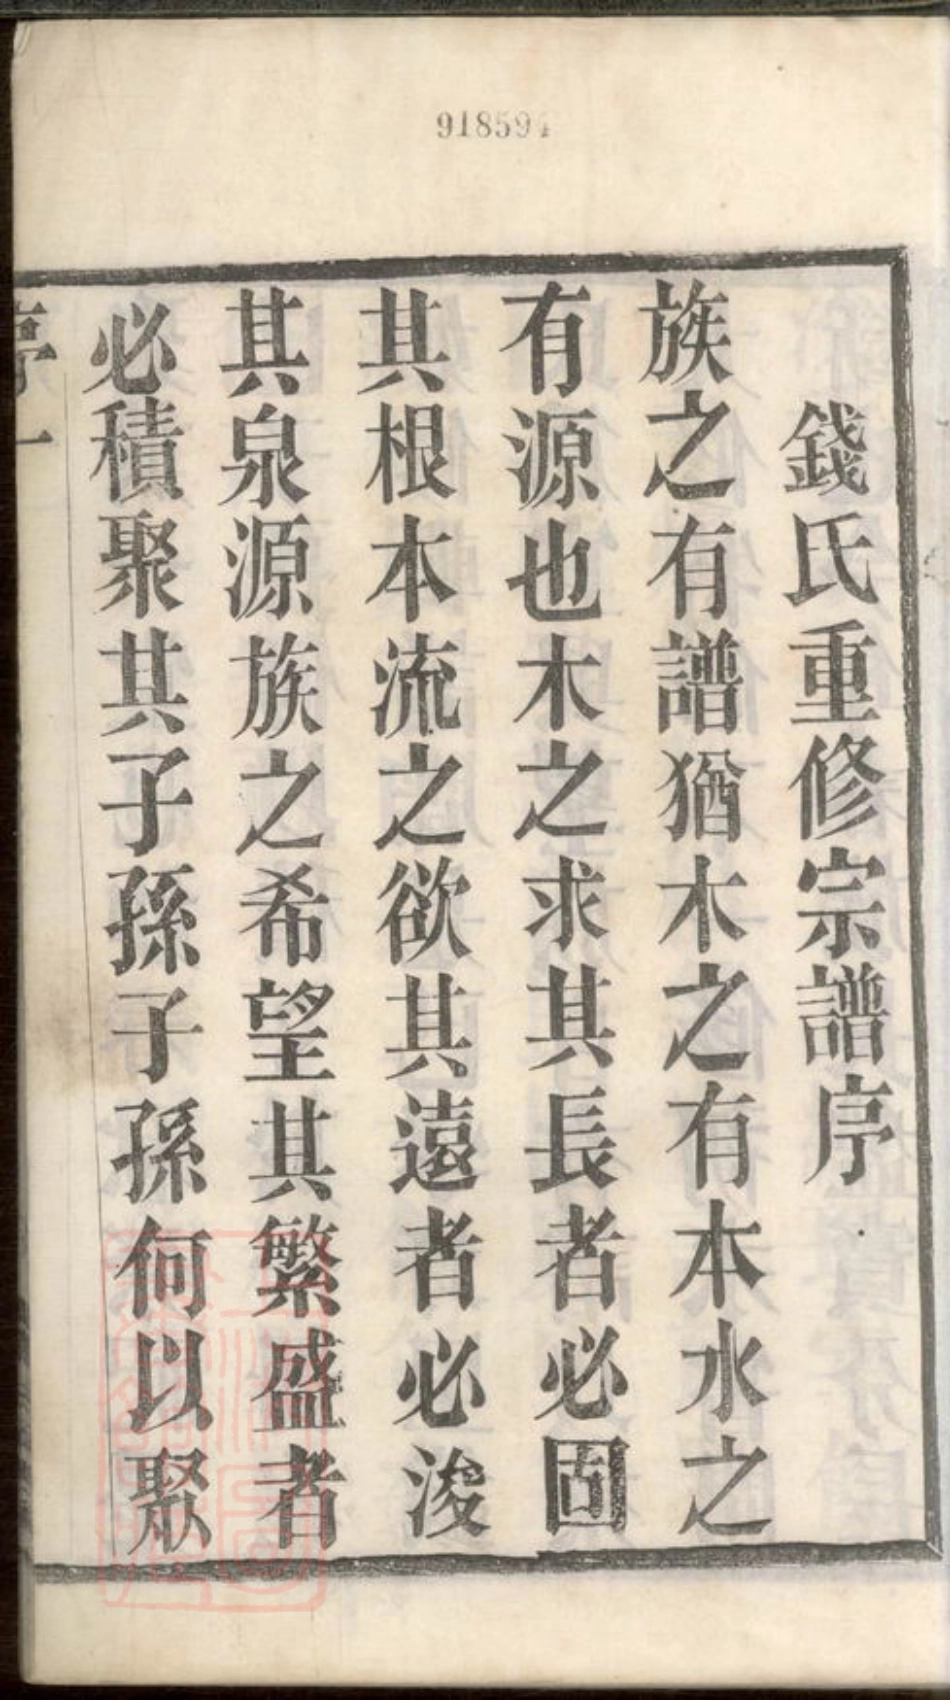 918594
錢氏重修宗譜序
族之有譜猶木之有本水之
有源也木之求其長者必固
其根本流之欲其遠者必浚
其泉源族之希望其繁盛者
必積聚其子孫子孫何以聚
序一